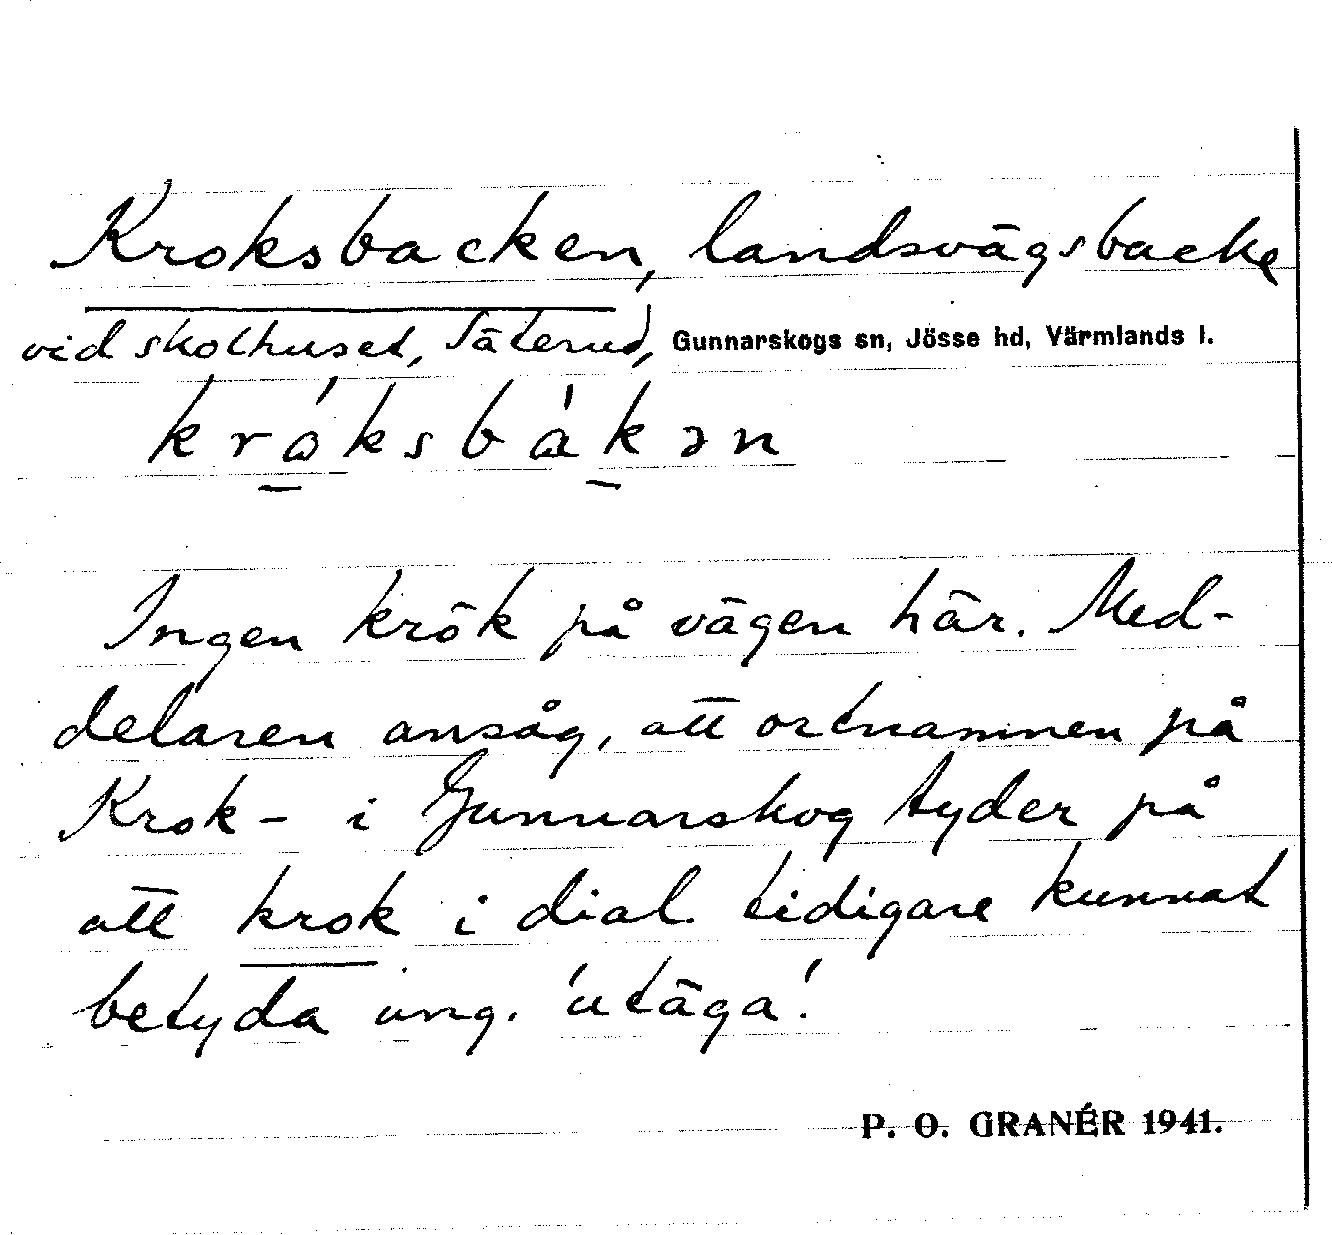 Kroksbacken, landsvägsbacke
vid skolhuset, Säterud, Gunnarskogs sn, Jösse hd, Värmlands l.
króksbákən
Ingen krök på vägen här. Med-
delaren ansåg, att ortnamnen på
Krok- i Gunnarskog tyder på
att krok i dial. tidigare kunnat
betyda ung. 'utäga'.
P. O. GRANÉR 1941.